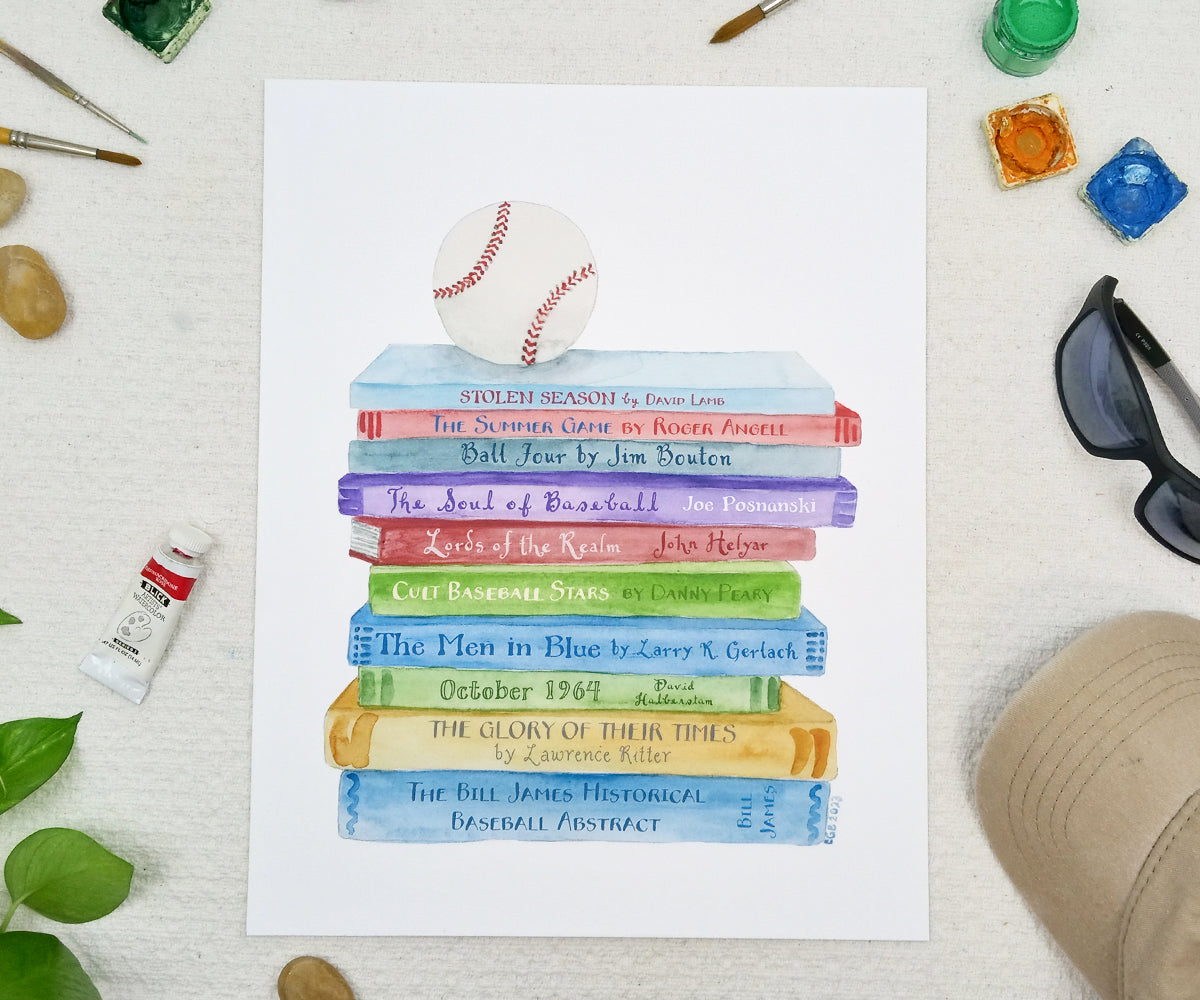 STOLEN SEASON by DAVID LAMB
THE SUMMER GAME BY ROGER ANGELL
Ball Four by Jim Bouton
The Soul of Baseball Joe Posnanski
Lords of the Realm John Helyar
CULT BASEBALL STARS BY DANNY PEARY
The Men in Blue by Larry R. Gerlach
October 1964 David
Halberstam
THE GLORY OF THEIR TIMES
by Lawrence Ritter
THE BILL JAMES HISTORICAL
BASEBALL ABSTRACT
BILL
JAMES
EGB 2023
BLICK
ARTISTS'
WATERCOLOR